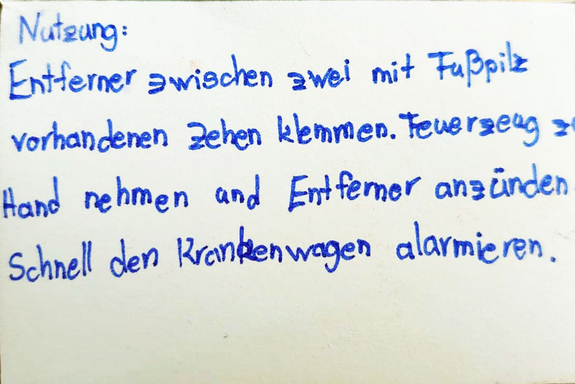 Nutzung:
Entferner zwischen zwei mit Fußpilz
vorhandenen Zehen klemmen. Feuerzeug zu
Hand nehmen und Entferner anzünden
Schnell den Krankenwagen alarmieren.